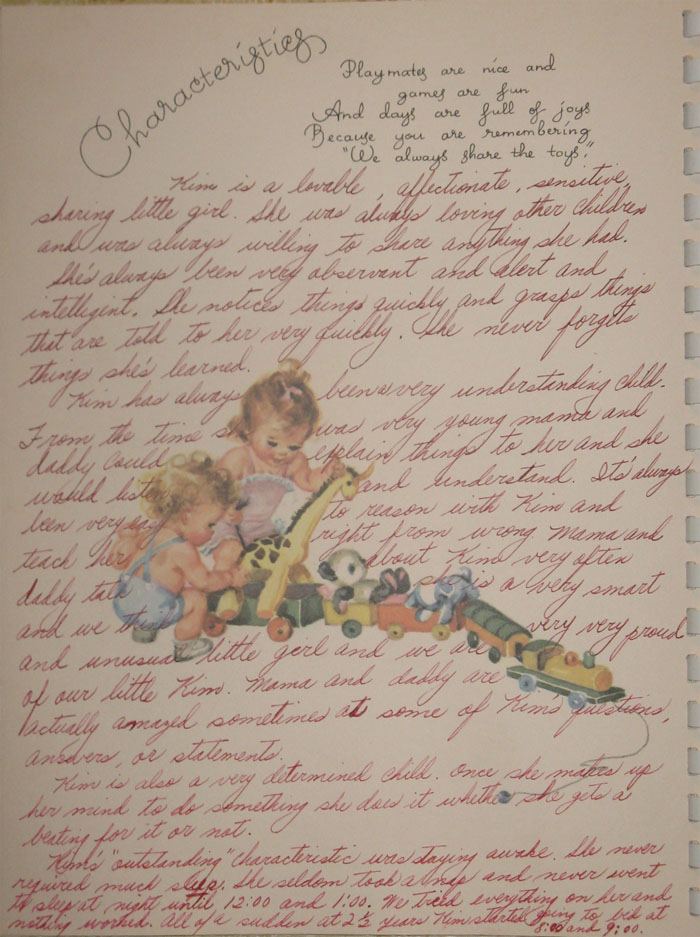 Characteristics
Playmates are nice and
games are fun
And days are full of joys
Because you are remembering
"We always share the toys."
Kim is a lovable, affectionate, sensitive,
sharing little girl. She was always loving other children
and was always willing to share anything she had.
She's always been very observant and alert and
intellegint. She notices things quickly and grasps things
that are told to her very quickly. She never forgets
things she's learned.
Kim has always been a very understanding child.
From the time s was very young mama and
daddy could explain things to her and she
would listen and understand. It's always
been very easy to reason with Kim and
teach her right from wrong. Mama and
daddy talk about Kim very often
and we think she is a very smart
and unusual little girl and we are very very proud
of our little Kim. Mama and daddy are
actually amazed sometimes at some of Kim's questions,
answers, or statements.
Kim is also a very determined child. Once she makes up
her mind to do something she does it whether she gets a
beating for it or not.
Kim's "outstanding" characteristic was staying awake. She never
required much sleep. She seldom took a nap and never went
to sleep at night until 12:00 and 1:00. We tried everything on her and
nothing worked. All of a sudden at 2½ years Kim started going to bed at
8:00 and 9:00.